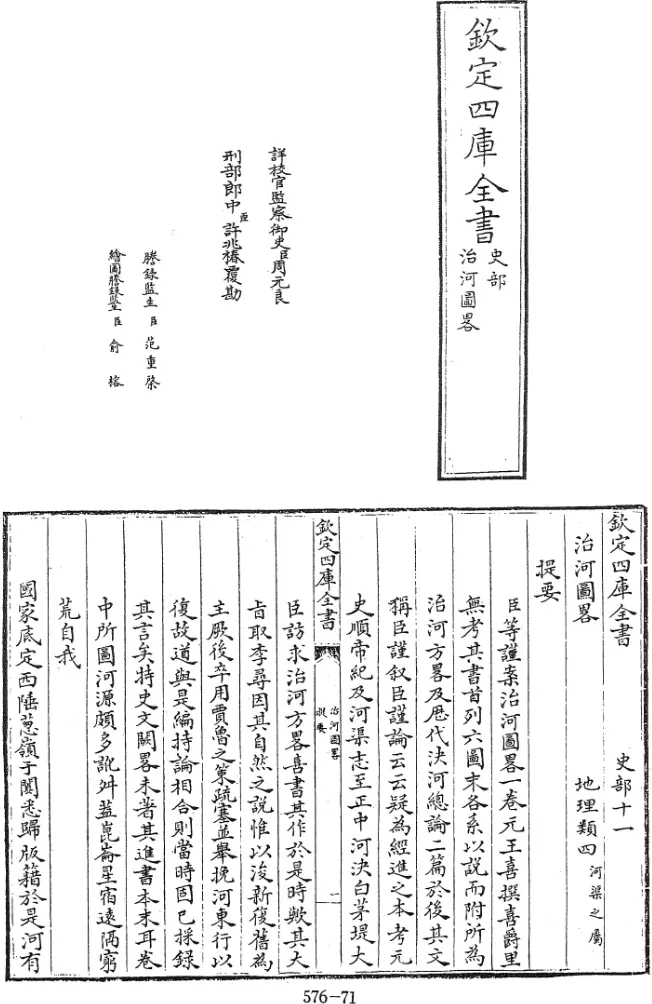 欽定四庫全書
史部
治河圖畧
詳校官監察御史臣周元良
刑部郎中臣許兆椿覆勘
謄錄監生臣范重棨
繪圖謄錄監生臣俞榕
欽定四庫全書 史部十一
治河圖畧 地理類四河渠之屬
提要
臣等謹案治河圖畧一卷元王喜撰喜爵里
無考其書首列六圖末各系以說而附所為
治河方畧及歴代決河總論二篇於後其文
稱臣謹叙臣謹論云云疑為經進之本考元
史順帝紀及河渠志至正中河決白茅堤大
欽定四庫全書
治河圖畧
提要
一
臣訪求治河方畧喜書其作於是時歟其大
旨取李尋因其自然之說惟以浚新復舊為
主厥後卒用賈魯之策疏塞並舉挽河東行以
復故道與是編持論相合則當時固已採錄
其言矣特史文闕畧未著其進書本末耳卷
中所圖河源頗多訛舛葢崑崙星宿遠隔窮
荒自我
國家底定西陲葱嶺于闐悉歸版籍於是河有
576-71